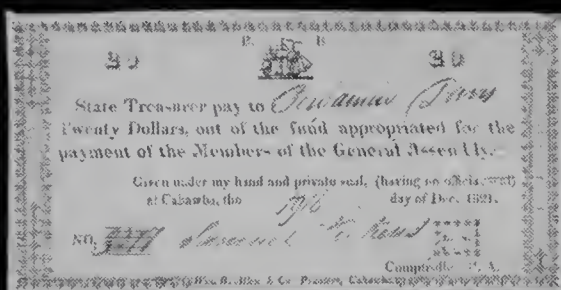 20 20
State Treasurer pay to Benjamin Davis
Twenty Dollars, out of the fund appropriated for the
payment of the Members of the General Assembly.
Given under my hand and private seal, (having no official seal)
at Cahawba, the day of Dec. 1821.
NO. Samuel Pickens
Comptroller P. A.
Wm. B. Allen & Co. Printers, Cahawba.